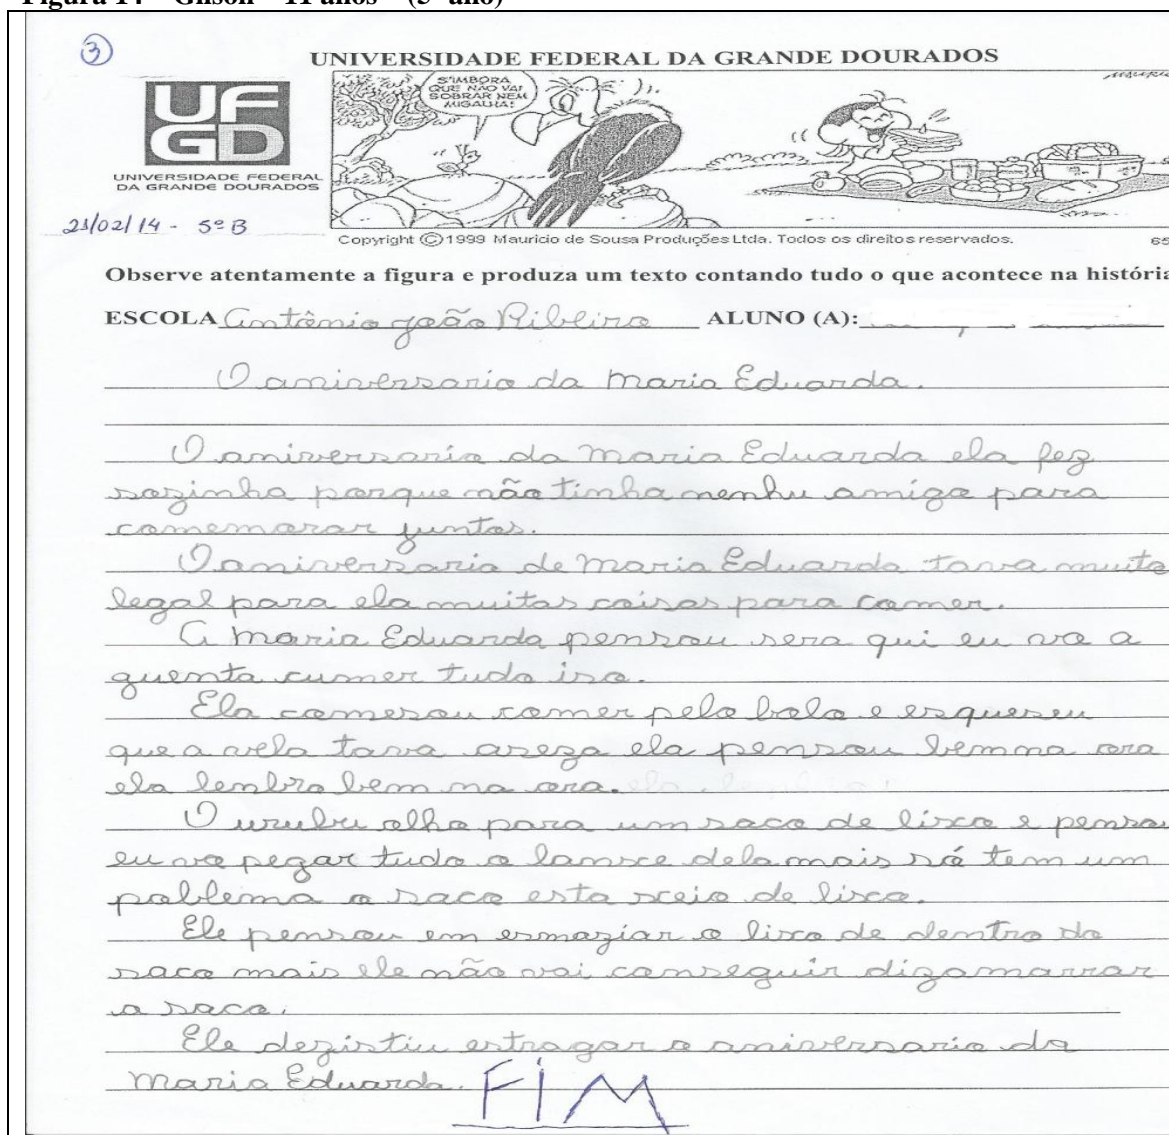 Figura 14 – Gilson – 11 anos – (5º ano)
3
UNIVERSIDADE FEDERAL DA GRANDE DOURADOS
UFGD
UNIVERSIDADE FEDERAL
DA GRANDE DOURADOS
S'IMBORA
QUE NÃO VAI
SOBRAR NEM
MIGALHA!
21/02/14 - 5º B
Copyright ©1999 Mauricio de Sousa Produções Ltda. Todos os direitos reservados.
Observe atentamente a figura e produza um texto contando tudo o que acontece na história
ESCOLA Antônio João Ribeiro ALUNO (A):
O aniversario da Maria Eduarda.
O aniversario da Maria Eduarda ela fez
sozinha porque não tinha nenhu amigo para
comemorar juntos.
O aniversario de Maria Eduarda tava muito
legal para ela muitas coisas para comer.
A Maria Eduarda pensou sera qui eu vo a
guenta cumer tudo iso.
Ela comesou comer pelo bolo e esqueseu
que a vela tava aseza ela pensou bem na ora
ela lembro bem na ora.
O urubu olho para um saco de lixo e pensou
eu vo pegar tudo o lansce dela mais só tem um
poblema o saco esta sceio de lixo.
Ele pensou em esmaziar o lixo de dentro do
saco mais ele não vai conseguir dizamarrar
o saco.
Ele dezistiu estragar o aniversario da
Maria Eduarda. FIM